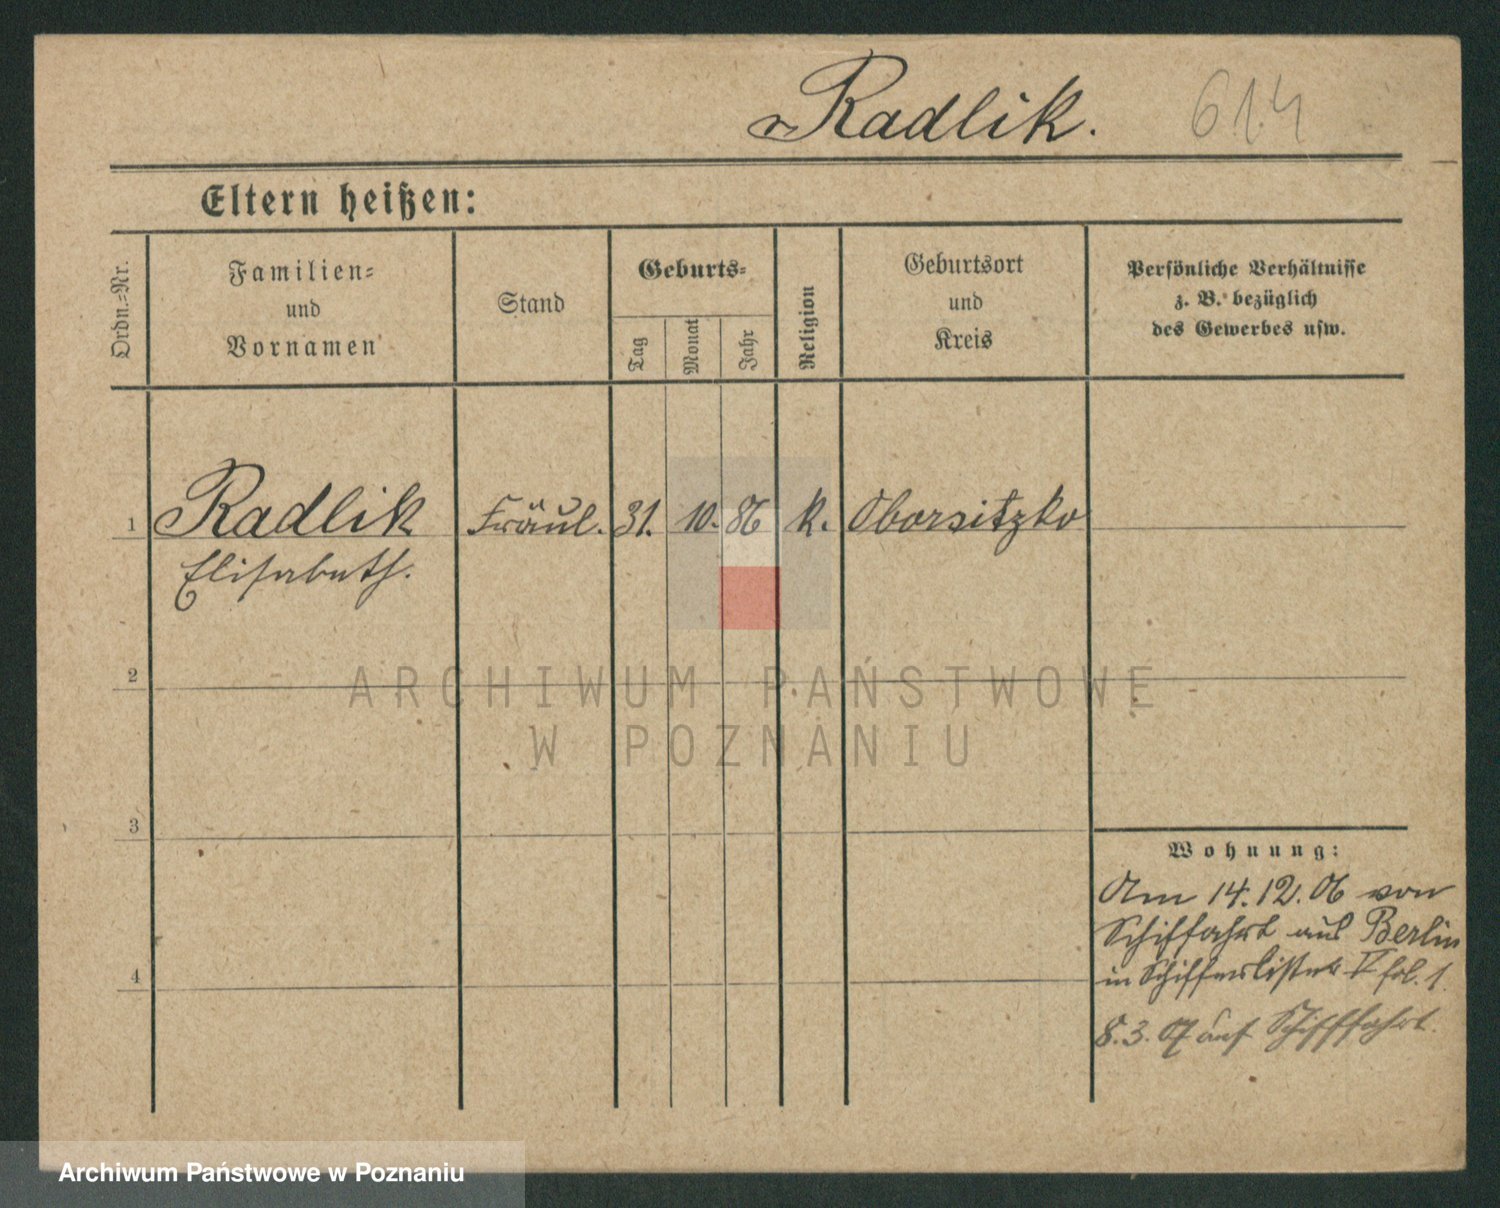 Radlik.
614
Eltern heißen:
Ordn.-Nr.
Familien-
und
Vornamen
Stand
Geburts-
Tag
Monat
Jahr
Religion
Geburtsort
und
Kreis
Persönliche Verhältnisse
z. B. bezüglich
des Gewerbes usw.
1 Radlik Fräul. 31. 10. 86 k. Obersitzko
Elisabeth.
2
3
4
Wohnung:
Am 14.12.06 von
Schiffahrt aus Berlin
in Schifferliste V fol. 1.
8.3.07 auf Schifffahrt.
ARCHIWUM PAŃSTWOWE
W POZNANIU
Archiwum Państwowe w Poznaniu